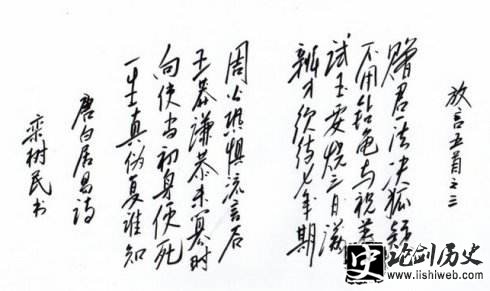 放言五首之三
赠君一法决狐疑
不用钻龟与祝蓍
试玉要烧三日满
辨才须待七年期
周公恐惧流言后
王莽谦恭未篡时
向使当初身便死
一生真伪复谁知
唐白居易诗
栾树民书
史 论剑历史
www.lishiweb.com